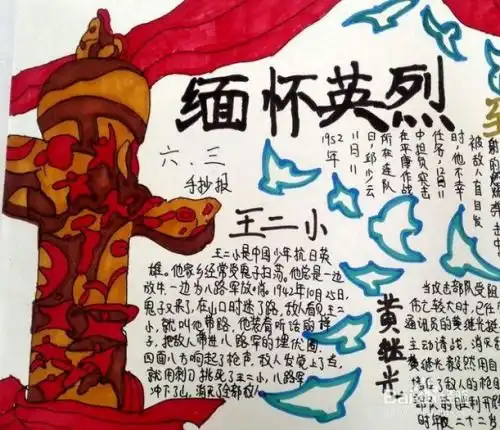 缅怀英烈
六.三
手抄报
王二小
王二小是中国少年抗日英
雄。他家乡经常受鬼子扫荡。他总是一边
放牛一边为八路军放哨。1942年10月25日,
鬼子又来了,在山口时迷了路,敌人看见王二
小,就叫他带路,他装着听话的样
子,把敌人带进八路军的埋伏圈,
四面八方响起了枪声,敌人发觉上了当,
就用刺刀挑死了王二小,八路军
冲下了山,消灭了全部敌人
1952年
11月11
日,邱少云
所在连队
在平康作战
中担负突击
任务,12日
时,他不幸
被敌人
黄继光
当攻击部队受阻
伤亡较大时,已任
通讯员的黄继光挺
主动请战,消灭
黄继光毅然用自
挡住了敌人的枪
部队的胜利开
时年 二十二岁